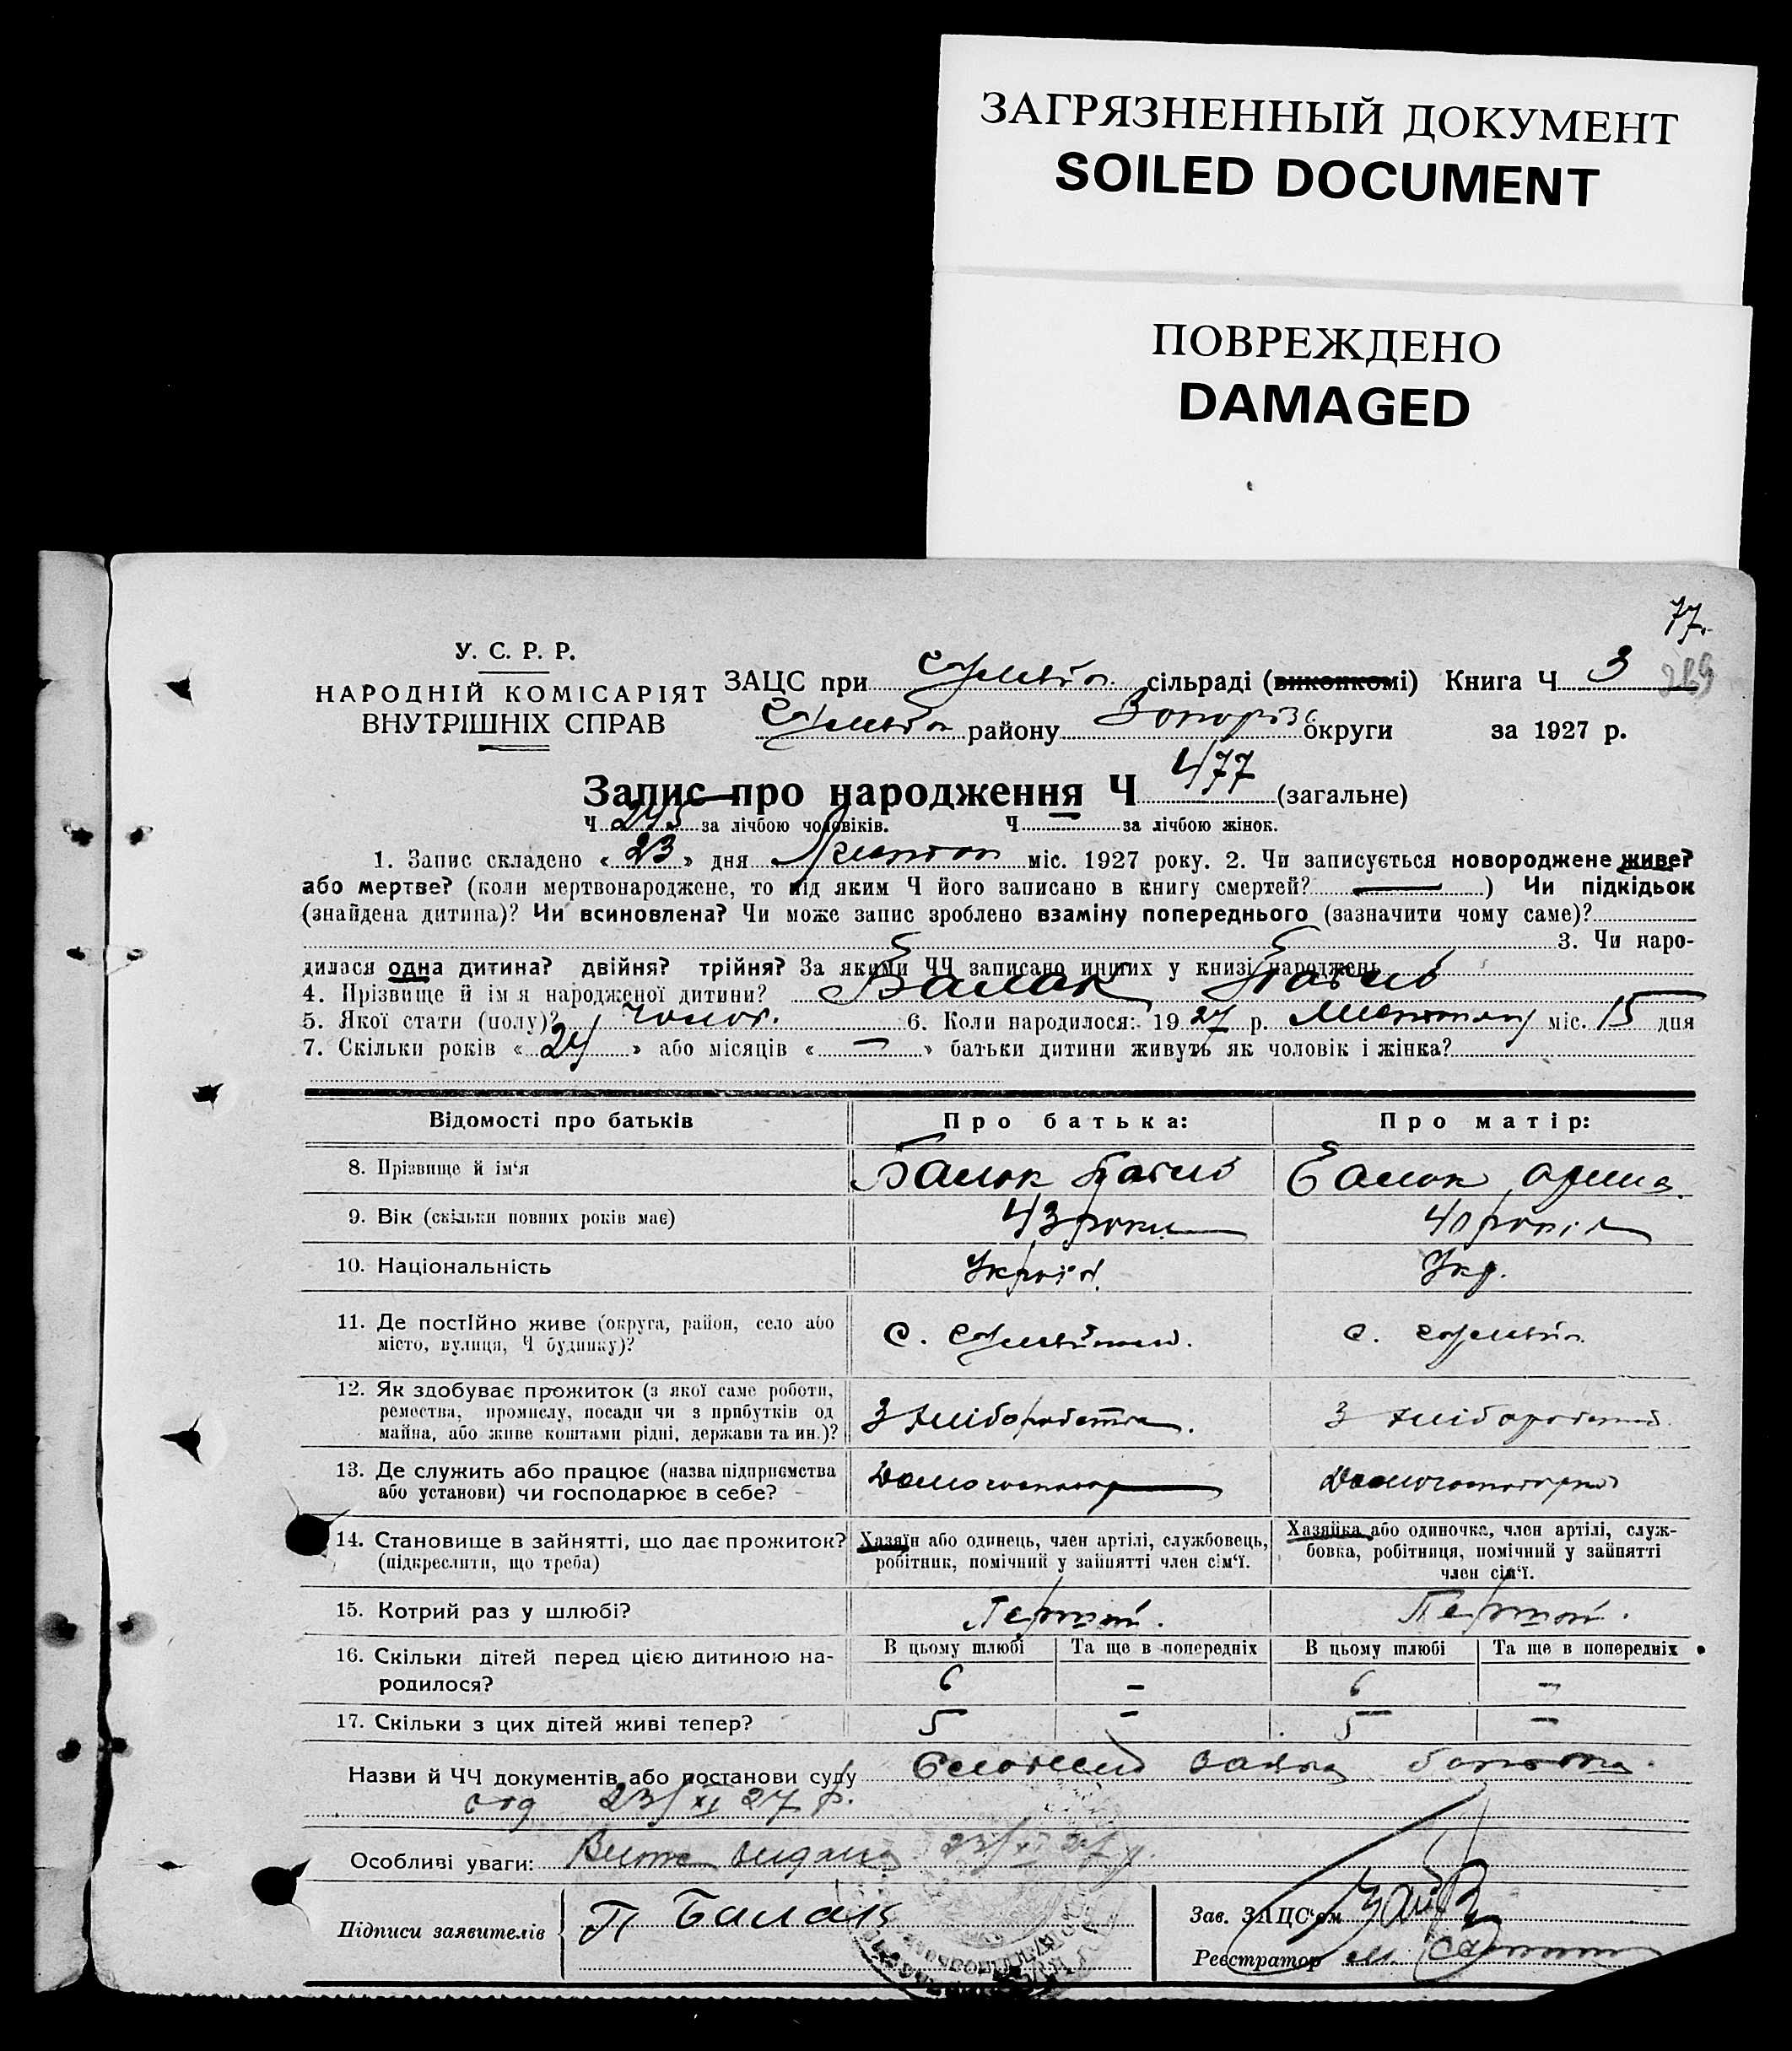 ЗАГРЯЗНЕННЫЙ ДОКУМЕНТ
SOILED DOCUMENT
ПОВРЕЖДЕНО
DAMAGED
77.
269
У. С. Р. Р.
НАРОДНІЙ КОМІСАРІЯТ
ВНУТРІШНІХ СПРАВ
ЗАЦС при сільраді (виконкомі) Книга Ч 3
району Запоріз округи за 1927 р.
Запис про народження Ч 477 (загальне)
Ч 245 за лічбою чоловіків. Ч за лічбою жінок.
1. Запис складено « 23 » дня міс. 1927 року. 2. Чи записується новороджене живе?
або мертве? (коли мертвонароджене, то під яким Ч його записано в книгу смертей? — ) Чи підкідьок
(знайдена дитина)? Чи всиновлена? Чи може запис зроблено взаміну попереднього (зазначити чому саме)?
3. Чи наро-
дилася одна дитина? двійня? трійня? За якими ЧЧ записано инших у книзі народжень
4. Прізвище й ім я народженої дитини? Балак Павло
5. Якої стати (полу)? Чолов. 6. Коли народилося: 19 27 р. Листопад міс. 15 дня
7. Скільки років « 24 » або місяців « — » батьки дитини живуть як чоловік і жінка?
Відомості про батьків Про батька: Про матір:
8. Прізвище й ім‘я Балак Павло Балак
9. Вік (скільки повних років має) 43 роки 40 років
10. Національність Укр.
11. Де постІйно живе (округа, район, село або
місто, вулиця, Ч будинку)? с. с.
12. Як здобуває прожиток (з якої саме роботи,
ремества, промислу, посади чи з прибутків од
майна, або живе коштами рідні, держави та ин.)? З хліборобства. З хліборобства
13. Де служить або працює (назва підприємства
або установи) чи господарює в себе? Домогоспод
14. Становище в зайнятті, що дає прожиток?
(підкреслити, що треба)
Хазяїн або одинець, член артілі, службовець,
робітник, помічний у зайнятті член сім‘ї.
Хазяйка або одиночка, член артілі, служ-
бовка, робітниця, помічний у зайнятті
член сім‘ї.
15. Котрий раз у шлюбі? Перший. Перший.
В цьому шлюбі Та ще в попередніх В цьому шлюбі Та ще в попередніх
16. Скільки дітей перед цією дитиною на-
родилося? 6 — 6 —
17. Скільки з цих дітей живі тепер? 5 — 5 —
Назви й ЧЧ документів або постанови суду Словесна заява батька.
від 23/XI 27 р.
Особливі уваги: видана 23/XI 27 р.
Підписи заявителів П Балак
Зав. ЗАЦС‘ом
Реєстратор